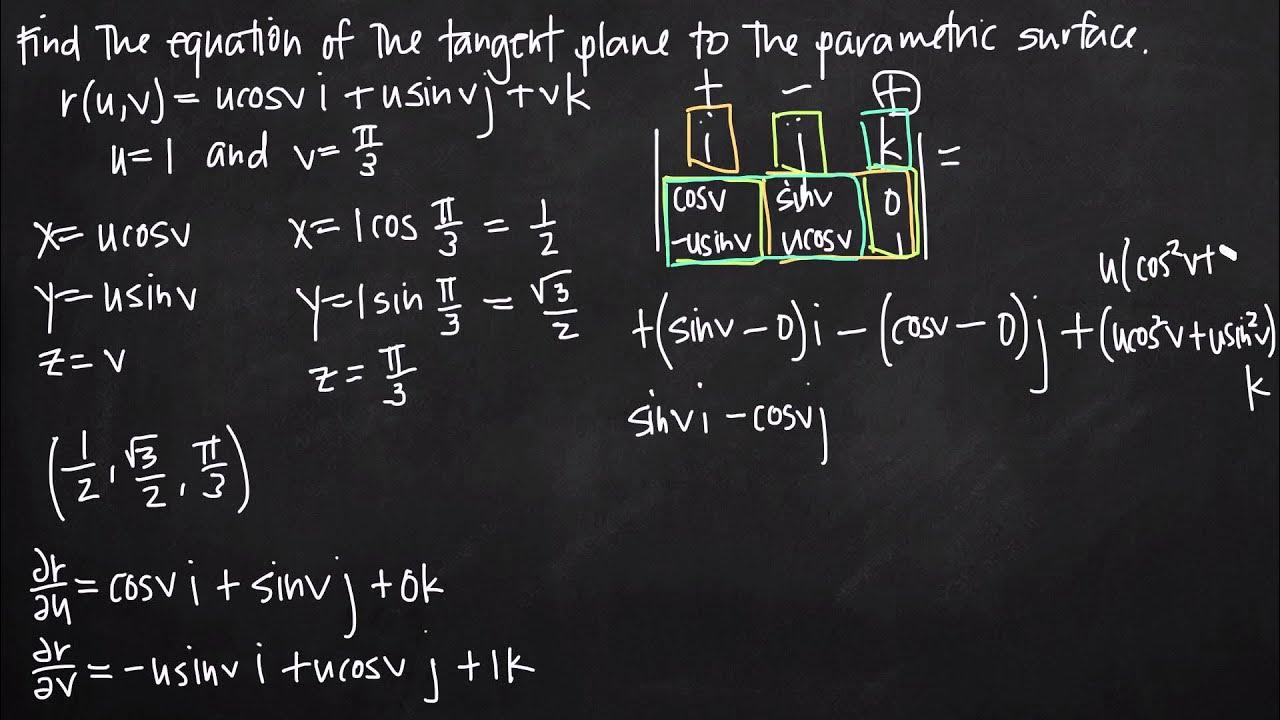 Find the equation of the tangent plane to the parametric surface.
r(u,v) = ucosv i + usinv j + vk
u=1 and v= π/3
x= ucosv
y= usinv
z= v
x= 1cos π/3 = 1/2
y= 1sin π/3 = √3/2
z= π/3
(1/2, √3/2, π/3)
∂r/∂u = cosv i + sinv j + 0k
∂r/∂v = -usinv i + ucosv j + 1k
+ - +
| i j k | =
cosv sinv 0
-usinv ucosv 1
u(cos²v+
+(sinv - 0)i - (cosv - 0)j + (ucos²v + usin²v)
k
sinvi - cosvj